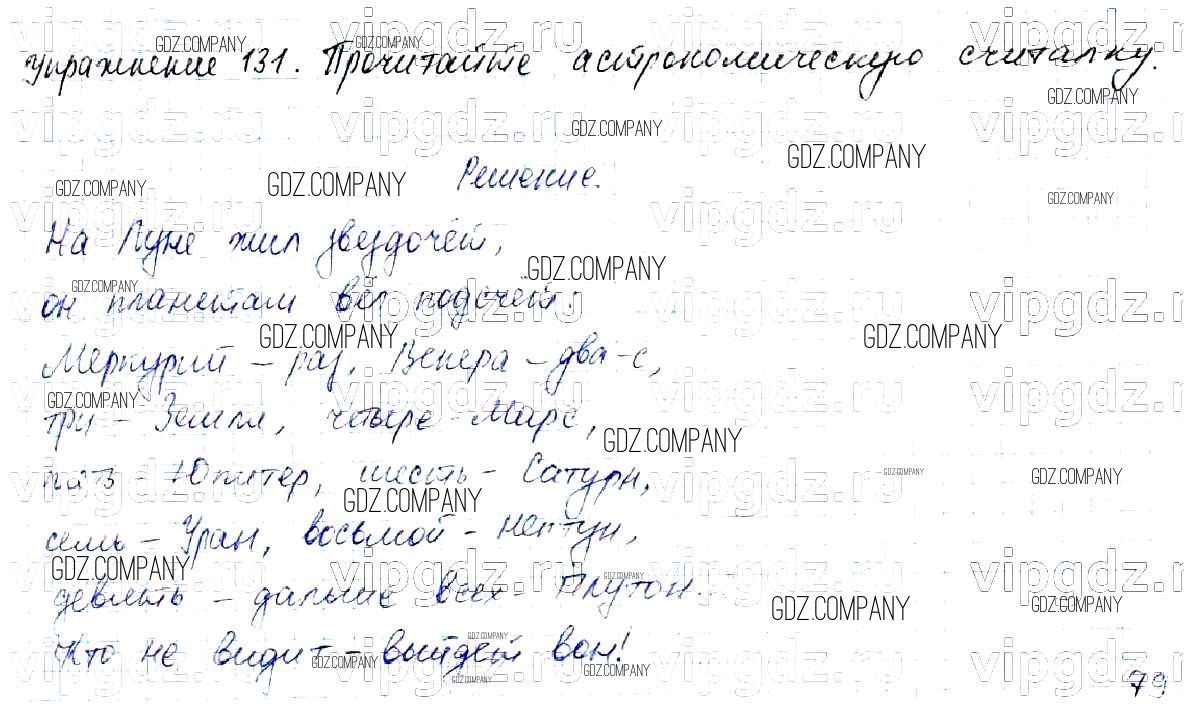 Упражнение 131. Прочитайте астрономическую считалку.
Решение.
На Луне жил звездочёт,
он планетам вёл подсчёт.
Меркурий – раз, Венера – два-с,
три – Земля, четыре – Марс,
пять – Юпитер, шесть – Сатурн,
семь – Уран, восьмой – Нептун,
девять – дальше всех – Плутон.
Кто не видит – выйдет вон!
79
vipgdz.ru
GDZ.COMPANY